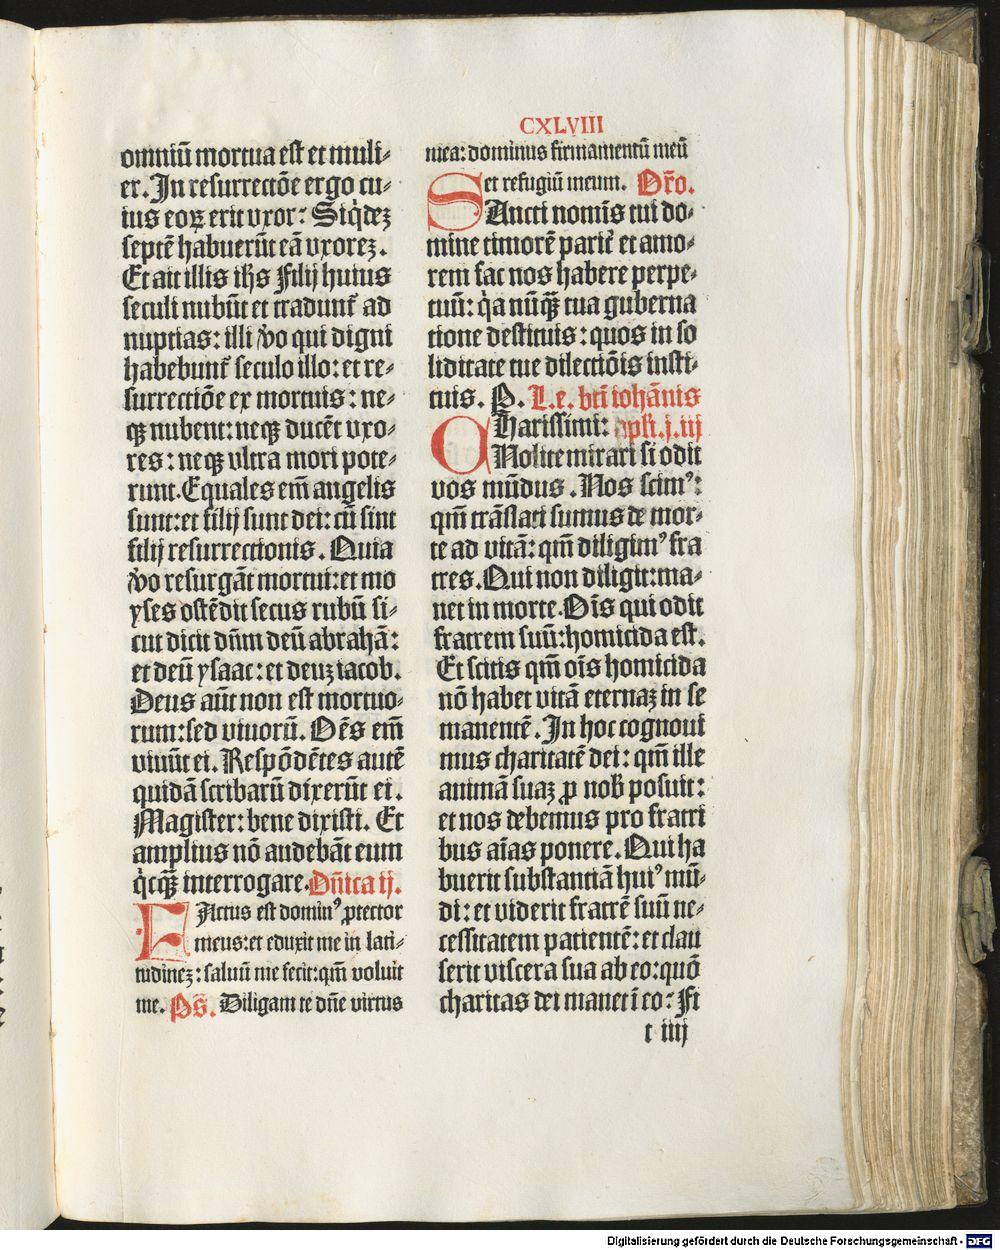 CXLVIII
omniū mortua est et muli⸗
er. In resurrectōe ergo cu⸗
ius eoꝝ erit vxor? Siq̇dez
septē habuerūt eā vxorez.
Et ait illis ihs Filij huius
seculi nubūt et tradunt᷑ ad
nuptias: illi v̓o qui digni
habebunt᷑ seculo illo: et re⸗
surrectiōe ex mortuis: ne⸗
qꝫ nubent: neqꝫ ducēt vxo⸗
res: neqꝫ vltra mori pote⸗
runt. Equales em̄ angelis
sunt: et filij sunt dei: cū sint
filij resurrectionis. Quia
v̓o resurgāt mortui: et mo
yses ostēdit secus rubū si⸗
cut dicit dn̄m deū abrahā:
et deū ysaac: et deuz iacob.
Deus aūt non est mortuo⸗
rum: sed viuorū. Oēs em̄
viuūt ei. Respōdētes autē
quidā scribarū dixerūt ei.
Magister: bene dixisti. Et
amplius nō audebāt eum
q̇cqꝫ interrogare. Dn̄ica ij.
FActus est dominꝰ ꝓtector
meus: et eduxit me in lati⸗
tudinez: saluū me fecit: qm̄ voluit
me. Ps̄. Diligam te dn̄e virtus
mea: dominus firmamentū meū
et refugiū meum. Or̄o.
SAncti nomīs tui do⸗
mine timorē parit᷑ et amo⸗
rem fac nos habere perpe⸗
tuū: q̇a nūqꝫ tua guberna
tione destituis: quos in so
liditate tue dilectiōis insti⸗
tuis. P. L.e. bti iohānis
CHarissimi: apli. j. iij
Nolite mirari si odit
vos mūdus. Nos scimꝰ:
qm̄ trāslati sumus de mor⸗
te ad vitā: qm̄ diligimꝰ fra
tres. Qui non diligit: ma⸗
net in morte. Oīs qui odit
fratrem suū: homicida est.
Et scitis qm̄ oīs homicida
nō habet vitā eternaz in se
manentē. In hoc cognoui
mus charitatē dei: qm̄ ille
animā suaz ꝓ nob̄ posuit:
et nos debemus pro fratri
bus aīas ponere. Qui ha
buerit substantiā huiꝰ mū⸗
di: et viderit fratrē suū ne⸗
cessitatem patientē: et clau
serit viscera sua ab eo: quō
charitas dei manet ī eo? Fi
t iiij
Digitalisierung gefördert durch die Deutsche Forschungsgemeinschaft - DFG